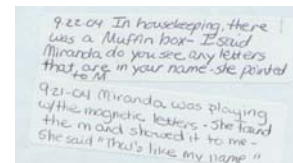 9.22.04 In housekeeping, there
was a Muffin box - I said
Miranda, do you see any letters
that are in your name - she pointed
to M
9-21-04 Miranda was playing
w/the magnetic letters - she found
the m and showed it to me -
She said "That's like my name"